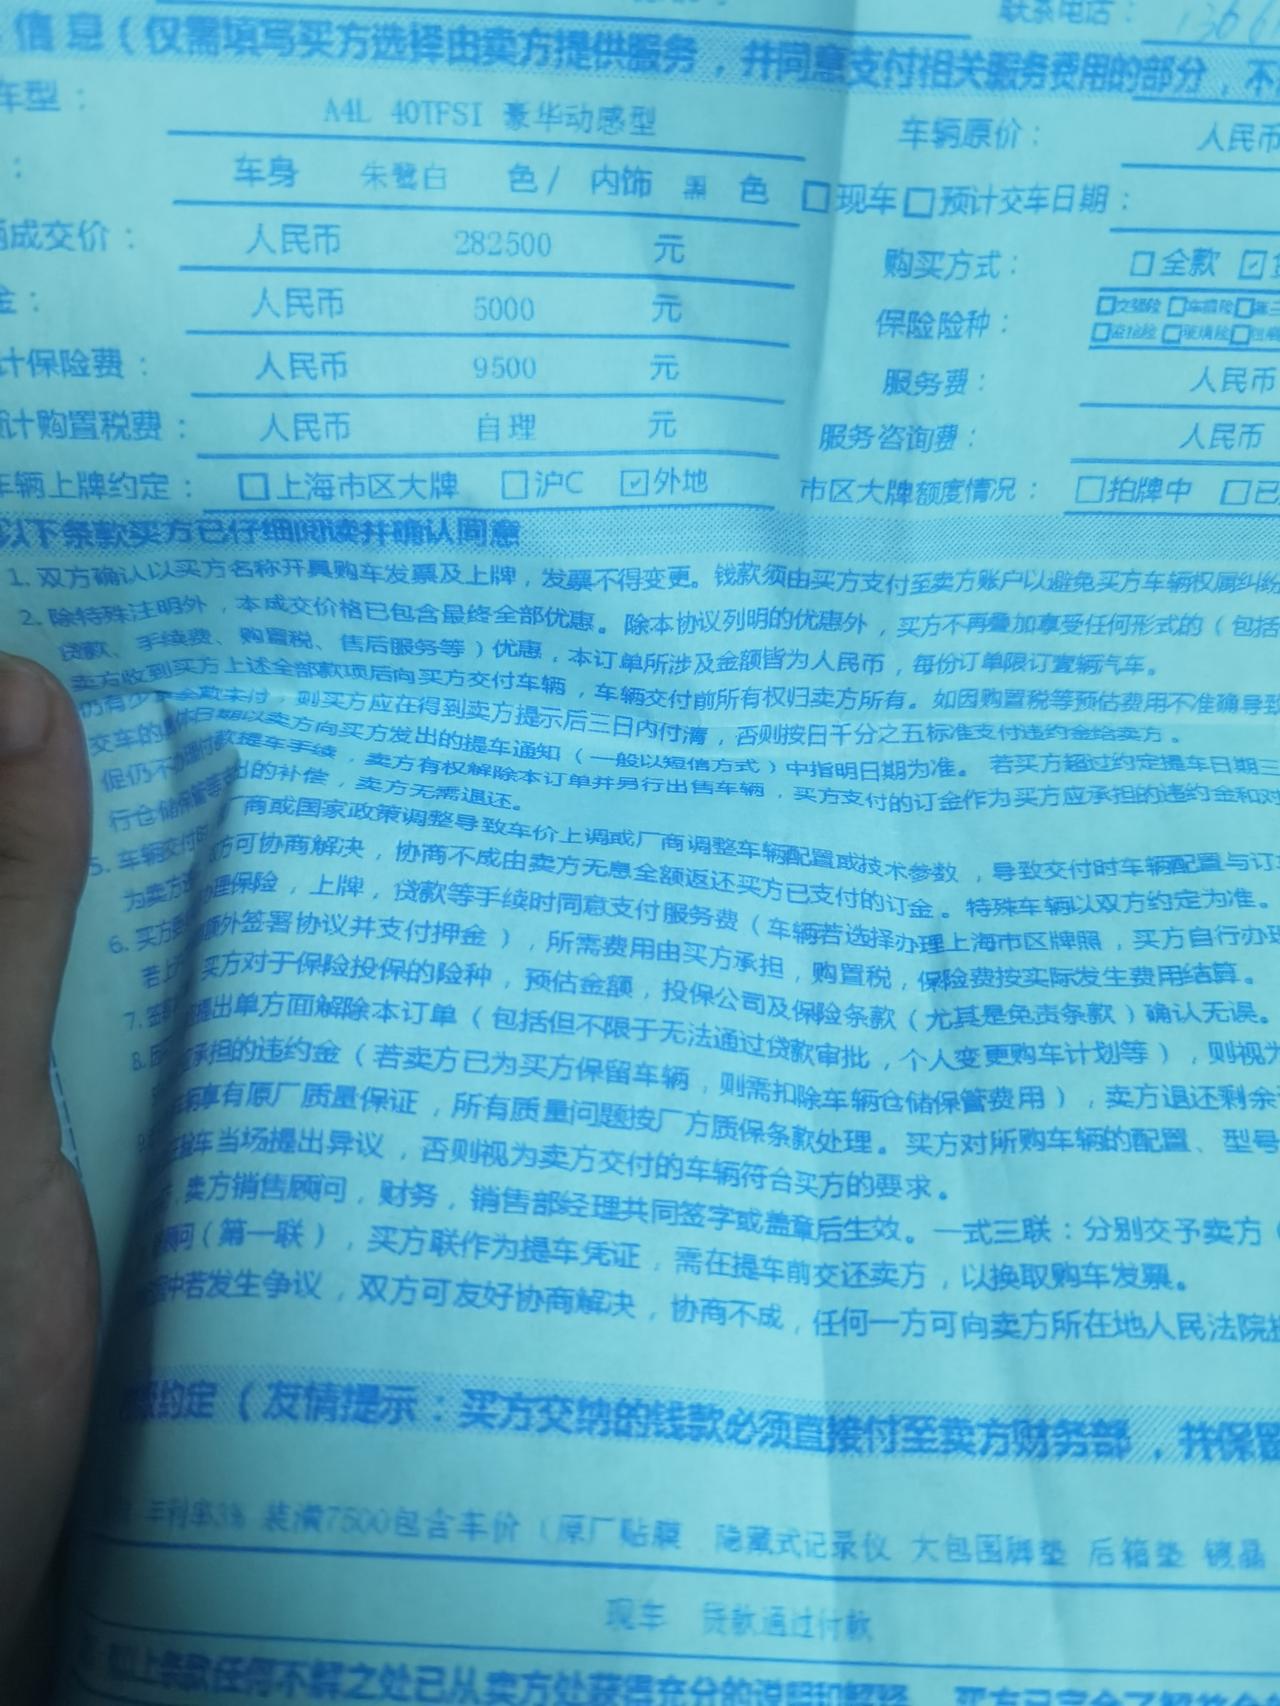 联系电话：
信息（仅需填写买方选择由卖方提供服务，并同意支付相关服务费用的部分，不
车型： A4L 40TFSI 豪华动感型 车辆原价： 人民币
： 车身 朱鹭白 色/ 内饰 黑 色 □现车□预计交车日期：
成交价： 人民币 282500 元 购买方式： □全款 ☑
金： 人民币 5000 元 保险险种： □交强险 □车损险□第三
□盗抢险 □玻璃险□
计保险费： 人民币 9500 元 服务费： 人民币
预计购置税费： 人民币 自理 元 服务咨询费： 人民币
车辆上牌约定： □上海市区大牌 □沪C ☑外地 市区大牌额度情况： □拍牌中 □已
以下条款买方已仔细阅读并确认同意
1. 双方确认以买方名称开具购车发票及上牌，发票不得变更。钱款须由买方支付至卖方账户以避免买方车辆权属纠纷
2. 除特殊注明外，本成交价格已包含最终全部优惠。除本协议列明的优惠外，买方不再叠加享受任何形式的（包括
贷款、手续费、购置税、售后服务等）优惠，本订单所涉及金额皆为人民币，每份订单限订壹辆汽车。
卖方收到买方上述全部款项后向买方交付车辆，车辆交付前所有权归卖方所有。如因购置税等预估费用不准确导致
仍有少 余款未付，则买方应在得到卖方提示后三日内付清，否则按日千分之五标准支付违约金给卖方。
交车的具体日期以卖方向买方发出的提车通知（一般以短信方式）中指明日期为准。若买方超过约定提车日期三
促仍不办理付款提车手续，卖方有权解除本订单并另行出售车辆，买方支付的订金作为买方应承担的违约金和对
行仓储保管等 出的补偿，卖方无需退还。
5. 车辆交付时 厂商或国家政策调整导致车价上调或厂商调整车辆配置或技术参数，导致交付时车辆配置与订
为卖方 方可协商解决，协商不成由卖方无息全额返还买方已支付的订金。特殊车辆以双方约定为准。
6. 买方 办理保险，上牌，贷款等手续时同意支付服务费（车辆若选择办理上海市区牌照，买方自行办理
若上 额外签署协议并支付押金），所需费用由买方承担，购置税，保险费按实际发生费用结算。
7. 签 买方对于保险投保的险种，预估金额，投保公司及保险条款（尤其是免责条款）确认无误。
8. 提出单方面解除本订单（包括但不限于无法通过贷款审批，个人变更购车计划等），则视为
承担的违约金（若卖方已为买方保留车辆，则需扣除车辆仓储保管费用），卖方退还剩余
享有原厂质量保证，所有质量问题按厂方质保条款处理。买方对所购车辆的配置、型号
验车当场提出异议，否则视为卖方交付的车辆符合买方的要求。
卖方销售顾问，财务，销售部经理共同签字或盖章后生效。一式三联：分别交予卖方（
顾问（第一联），买方联作为提车凭证，需在提车前交还卖方，以换取购车发票。
中若发生争议，双方可友好协商解决，协商不成，任何一方可向卖方所在地人民法院
约定（友情提示：买方交纳的钱款必须直接付至卖方财务部，并保留
年利率3% 装潢7500包含车价（原厂贴膜 隐藏式记录仪 大包围脚垫 后箱垫 镀晶
现车 贷款通过付款
以上条款任何不解之处已从卖方处获得充分的说明和解释，买方已完全了解